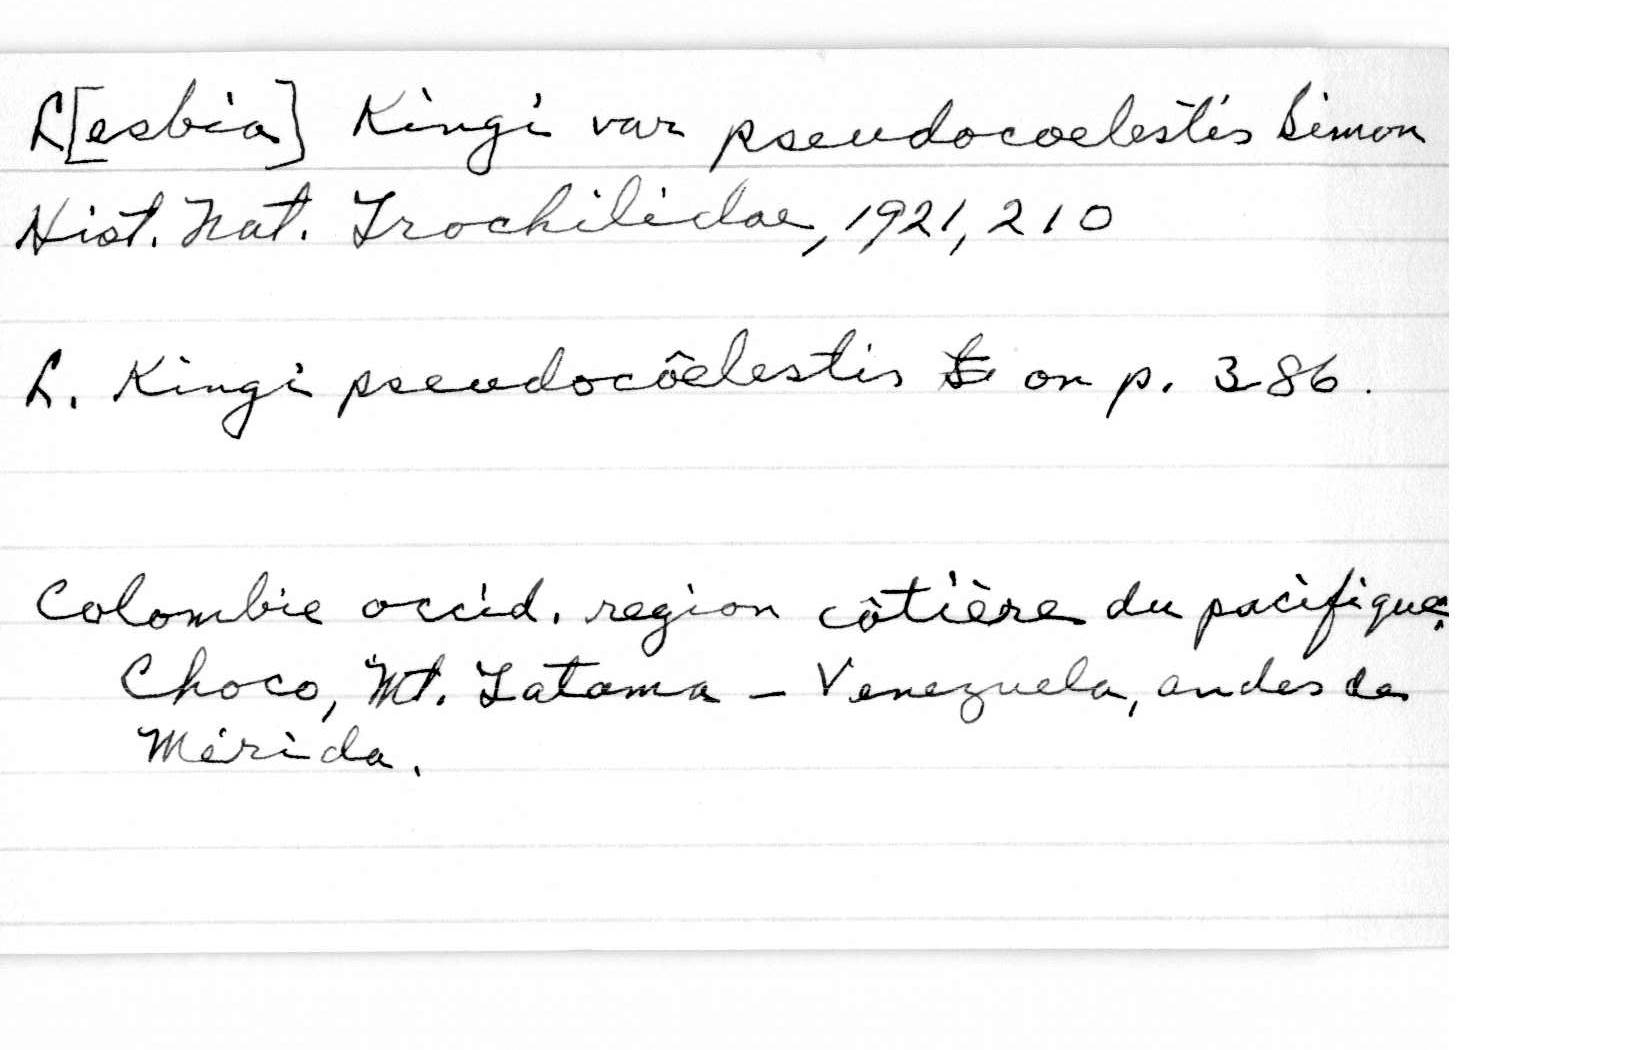 L[esbia] Kingi var pseudocoelestis Simon
Hist. Nat. Trochilidae, 1921, 210
L. Kingi pseudocôelestis on p. 386.
Colombie occid. region côtière du pacifique;
Choco, Mt. Tatama – Venezuela, andes de
Mérida.